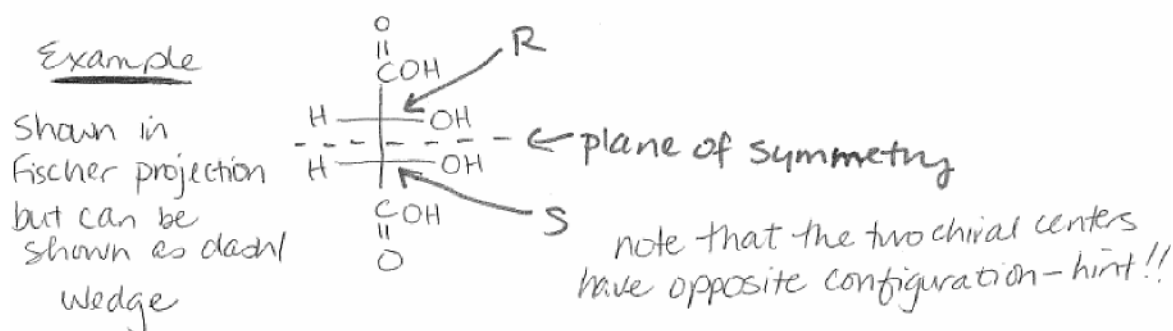 Example
Shown in
Fischer projection
but can be
shown as dash/
wedge
O
COH
R
H OH
plane of symmetry
H OH
COH
S
O
note that the two chiral centers
have opposite configuration - hint!!